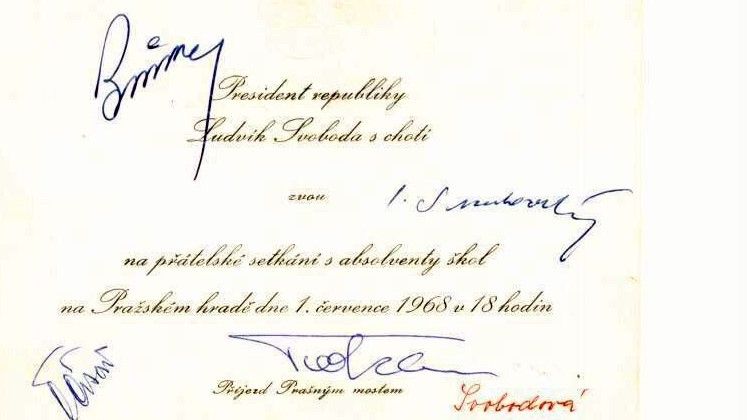 President republiky
Ludvík Svoboda s chotí
zvou
na přátelské setkání s absolventy škol
na Pražském hradě dne 1. července 1968 v 18 hodin
Příjezd Prašným mostem
Svobodová